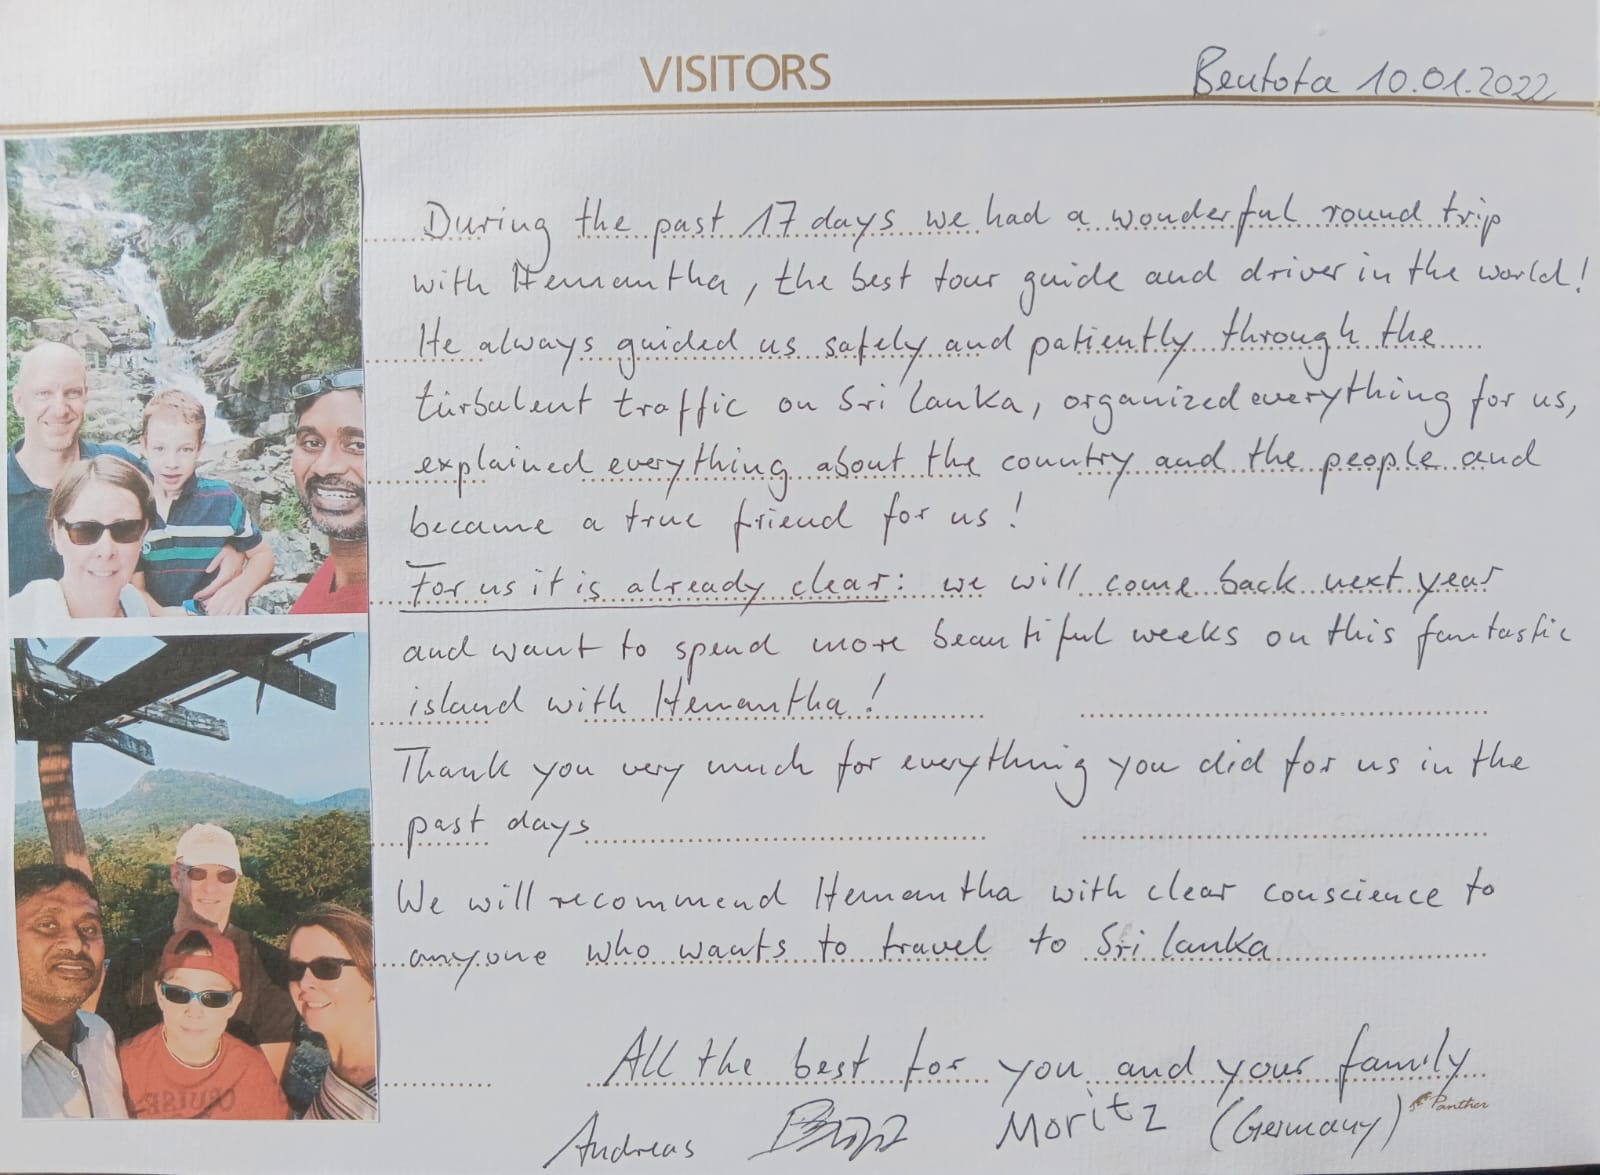 VISITORS
Bentota 10.01.2022
During the past 17 days we had a wonderful round trip
with Hemantha, the best tour guide and driver in the world!
He always guided us safely and patiently through the
turbulent traffic on Sri Lanka, organized everything for us,
explained everything about the country and the people and
became a true friend for us!
For us it is already clear: we will come back next year
and want to spend more beautiful weeks on this fantastic
island with Hemantha!
Thank you very much for everything you did for us in the
past days
We will recommend Hemantha with clear conscience to
anyone who wants to travel to Sri Lanka
All the best for you and your family
Andreas Moritz (Germany)
Panther